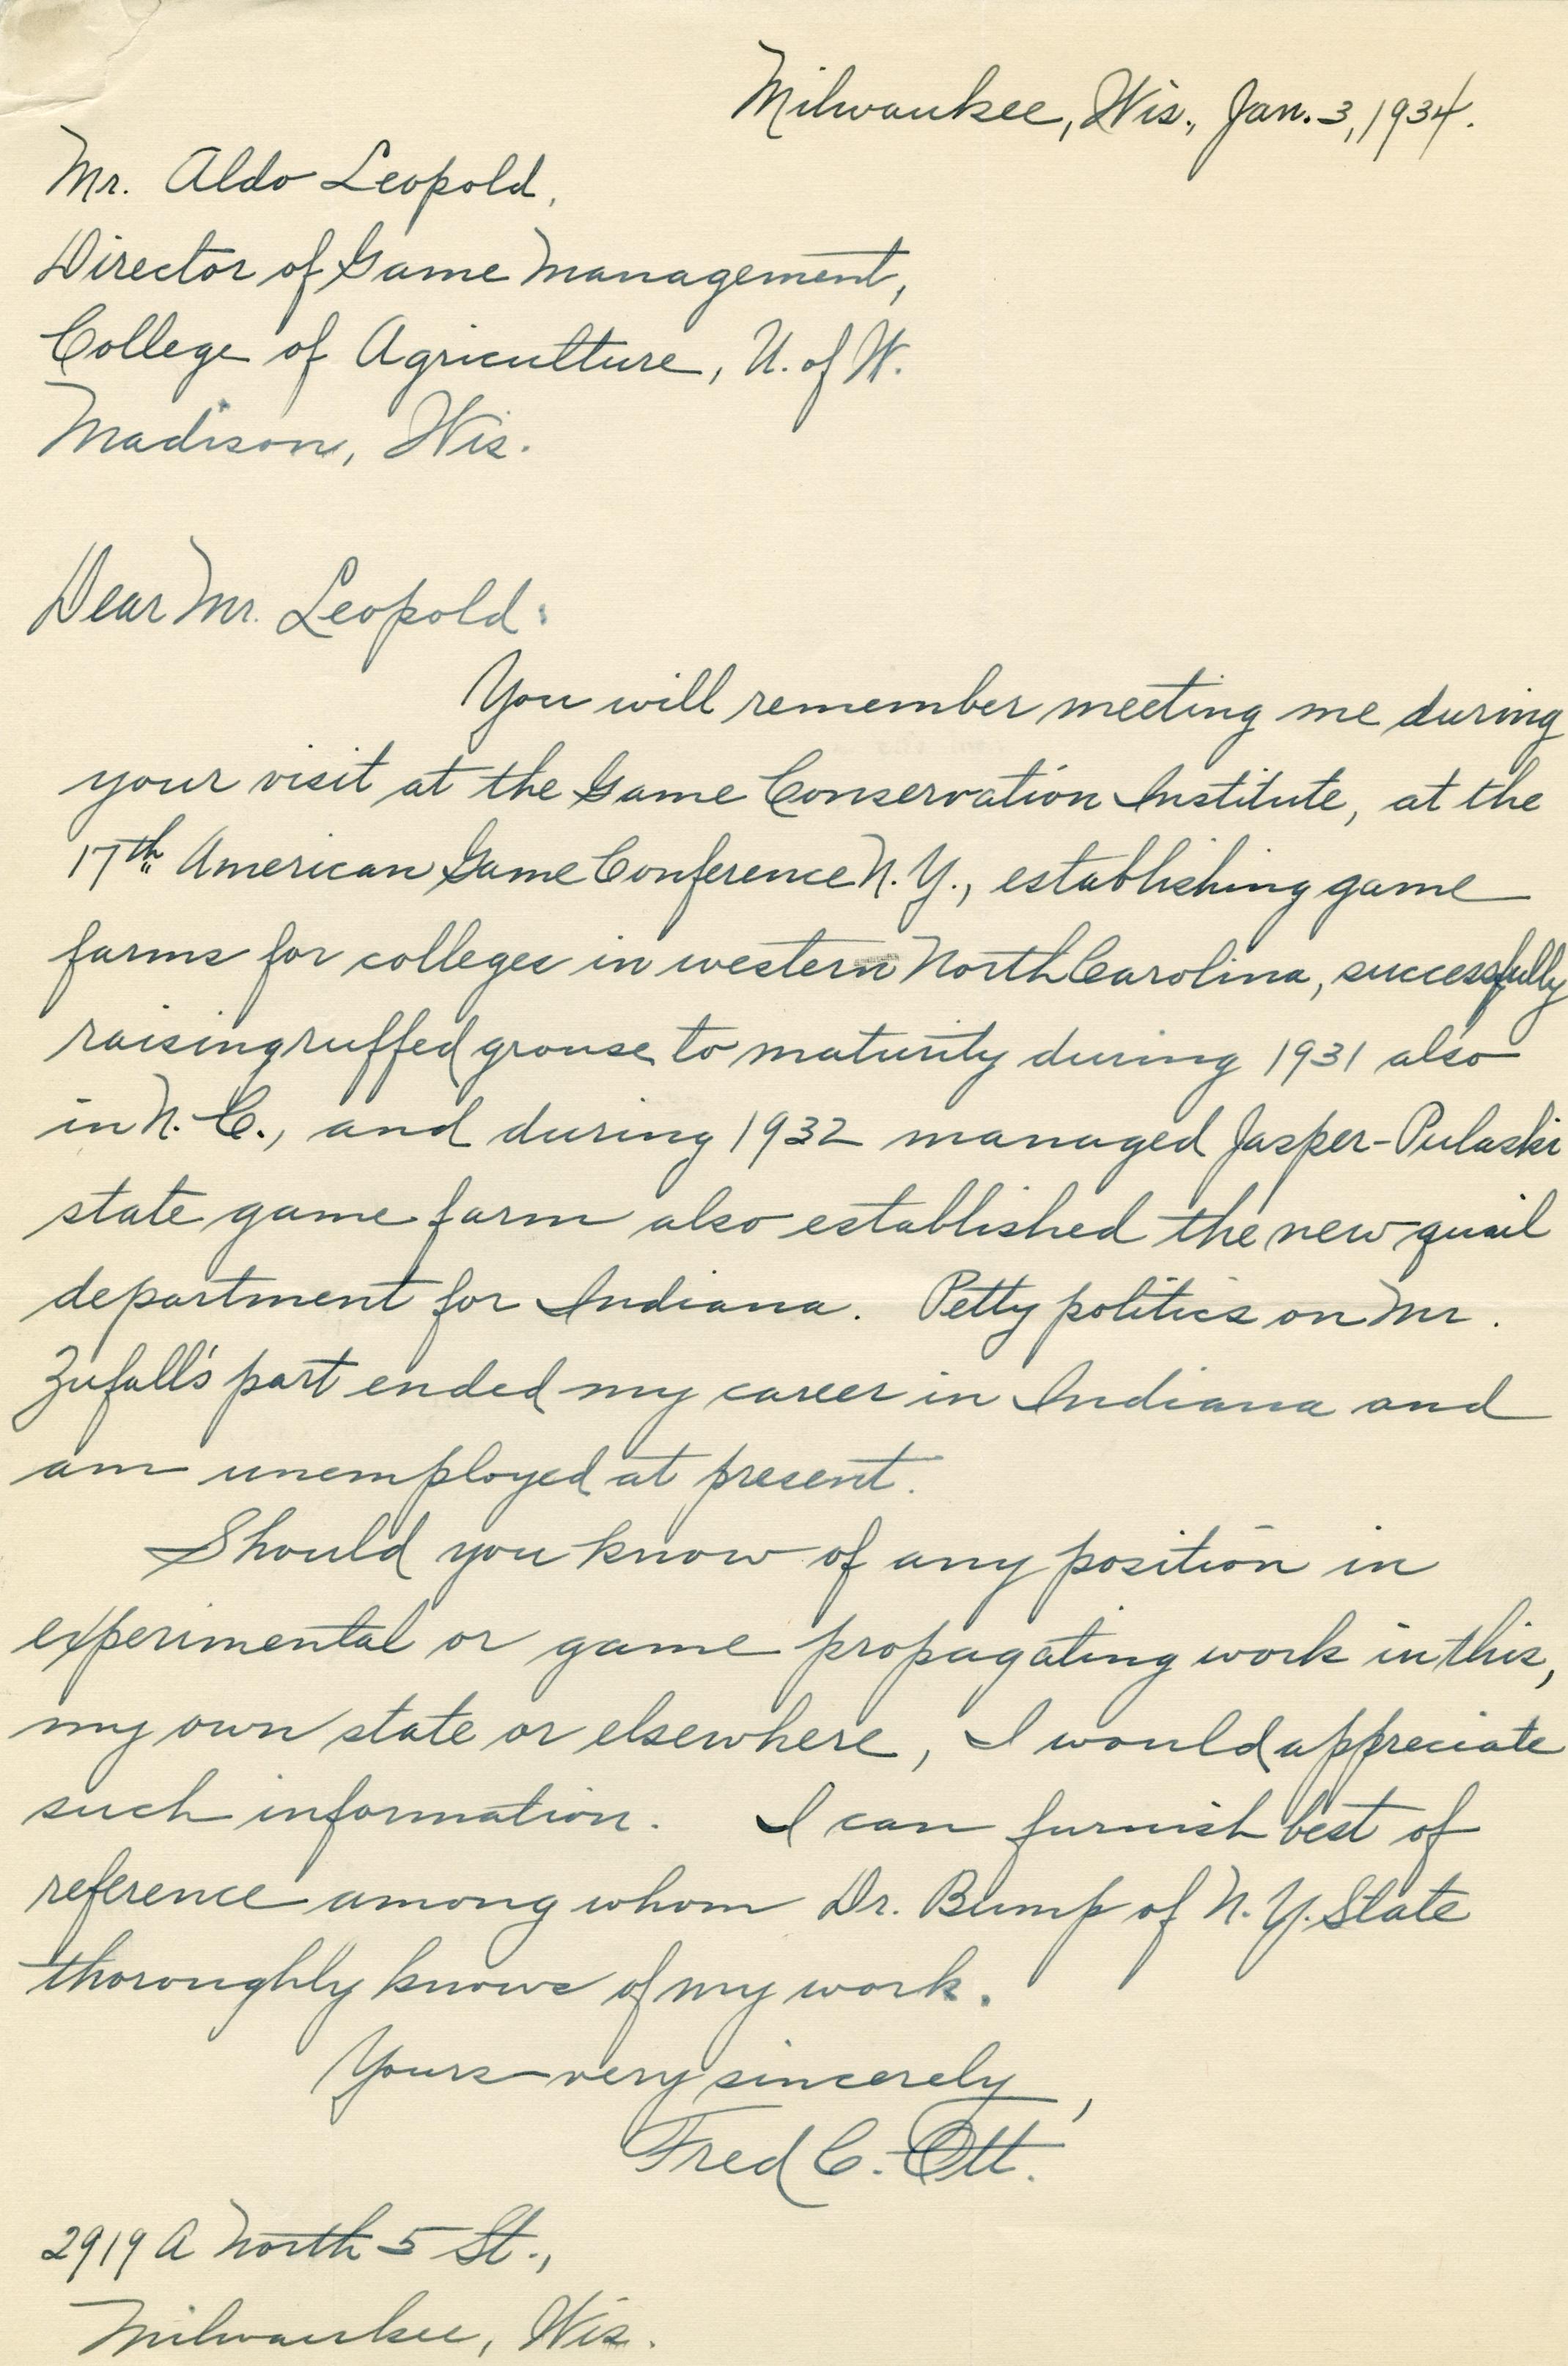 Milwaukee, Wis., Jan. 3, 1934.
Mr. Aldo Leopold,
Director of Game Management,
College of Agriculture, U. of W.
Madison, Wis.
Dear Mr. Leopold:
You will remember meeting me during
your visit at the Game Conservation Institute, at the
17th American Game Conference N.Y., establishing game
farms for colleges in western North Carolina, successfully
raising ruffed grouse to maturity during 1931 also
in N.C., and during 1932 managed Jasper-Pulaski
state game farm also established the new quail
department for Indiana. Petty politics on Mr.
Zufall's part ended my career in Indiana and
am unemployed at present.
Should you know of any position in
experimental or game propagating work in this,
my own state or elsewhere, I would appreciate
such information. I can furnish best of
reference among whom Dr. Bump of N.Y. State
thoroughly knows of my work.
Yours very sincerely,
Fred C. Ott.
2919 A North 5 St.,
Milwaukee, Wis.